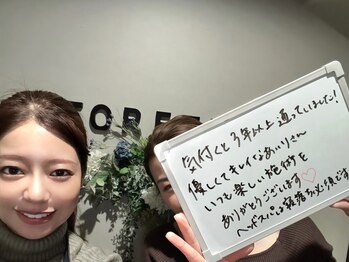 FORE
気付くと3年以上通っていました!
優しくてキレイなあいりさん
いつも楽しい施術を
ありがとうございます♡
ヘッドスパは